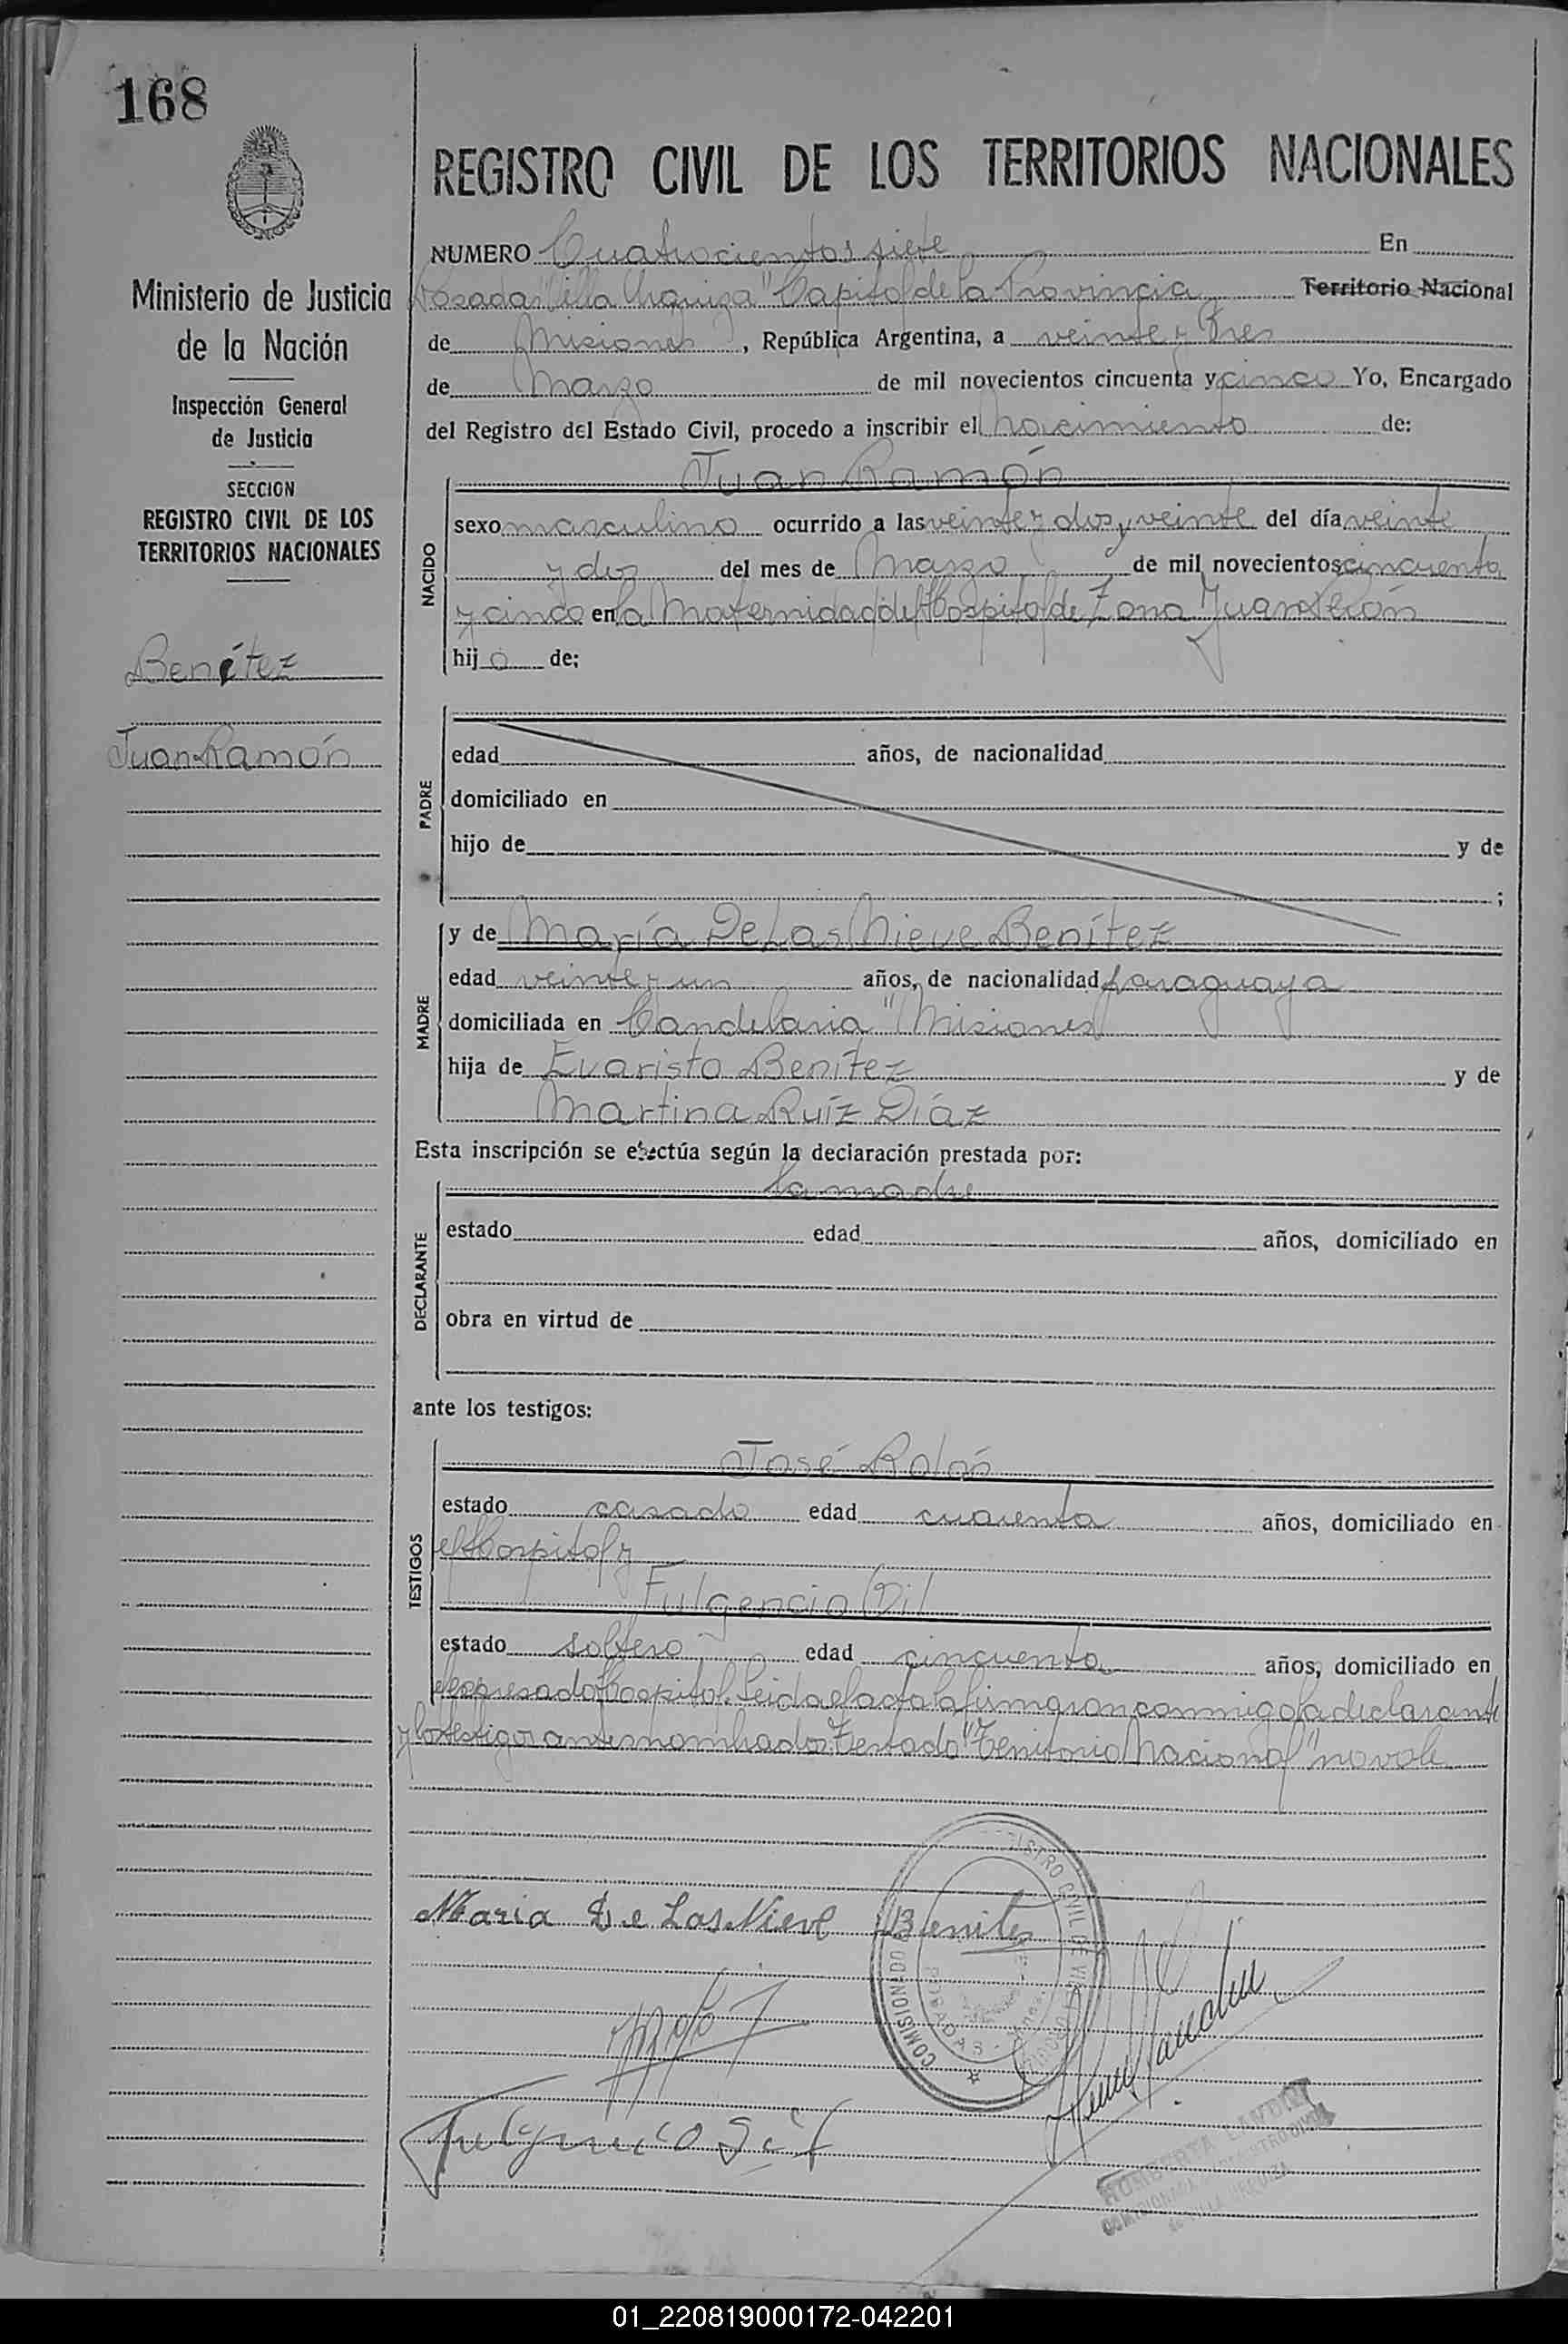 168
REGISTRO CIVIL DE LOS TERRITORIOS NACIONALES
Ministerio de Justicia
de la Nación
Inspección General
de Justicia
SECCION
REGISTRO CIVIL DE LOS
TERRITORIOS NACIONALES
Benítez
Juan Ramón
NUMERO Cuatrocientos siete En
Posadas "Villa Urquiza" Capital de la Provincia Territorio Nacional
de Misiones, República Argentina, a veinte y tres
de Marzo de mil novecientos cincuenta y cinco Yo, Encargado
del Registro del Estado Civil, procedo a inscribir el nacimiento de:
Juan Ramón
NACIDO
sexo masculino ocurrido a las veinte y dos y veinte del día veinte
y dos del mes de Marzo de mil novecientos cincuenta
y cinco en la Maternidad del Hospital de Zona Juan Perón
hijo de:
PADRE
edad años, de nacionalidad
domiciliado en
hijo de y de
;
MADRE
y de María De Las Nieve Benítez
edad veinte y un años, de nacionalidad paraguaya
domiciliada en Candelaria "Misiones
hija de Evaristo Benítez y de
Martina Ruíz Díaz
Esta inscripción se efectúa según la declaración prestada por:
DECLARANTE
la madre
estado edad años, domiciliado en
obra en virtud de
ante los testigos:
TESTIGOS
José
estado casado edad cuarenta años, domiciliado en
el Hospital y
Fulgencio Gil
estado soltero edad cincuenta años, domiciliado en
el expresado Hospital. Leida el acta la firmaron conmigo la declarante
y los testigos antes nombrados. Testado "Territorio Nacional" no vale
Maria De Las Nieve Benites
COMISIONADO REGISTRO CIVIL DE VILLA URQUIZA
POSADAS - Misiones
Fulgencio Gil
COMISIONADA REGISTRO CIVIL
de VILLA URQUIZA
01_220819000172-042201